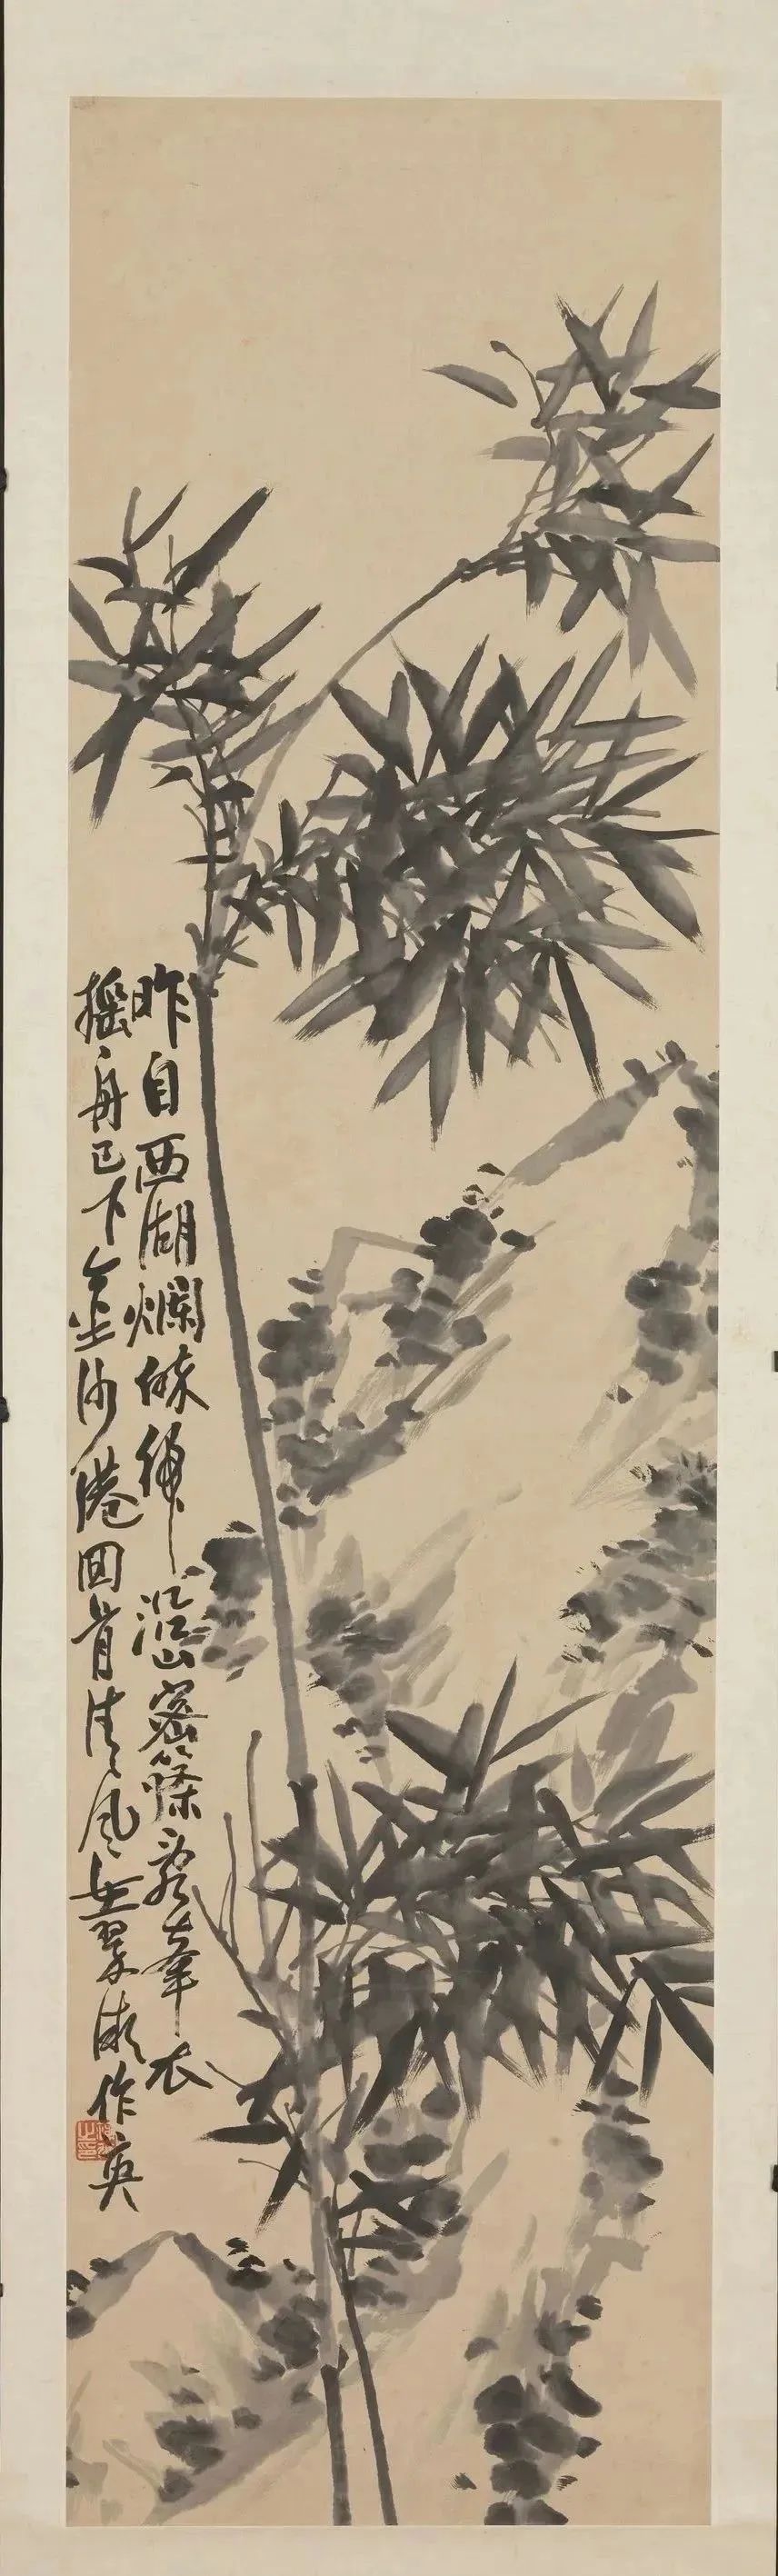 昨自西湖爛醉歸沿山密篠亂牽衣
搖舟已下金沙港回首清風在翠微作英